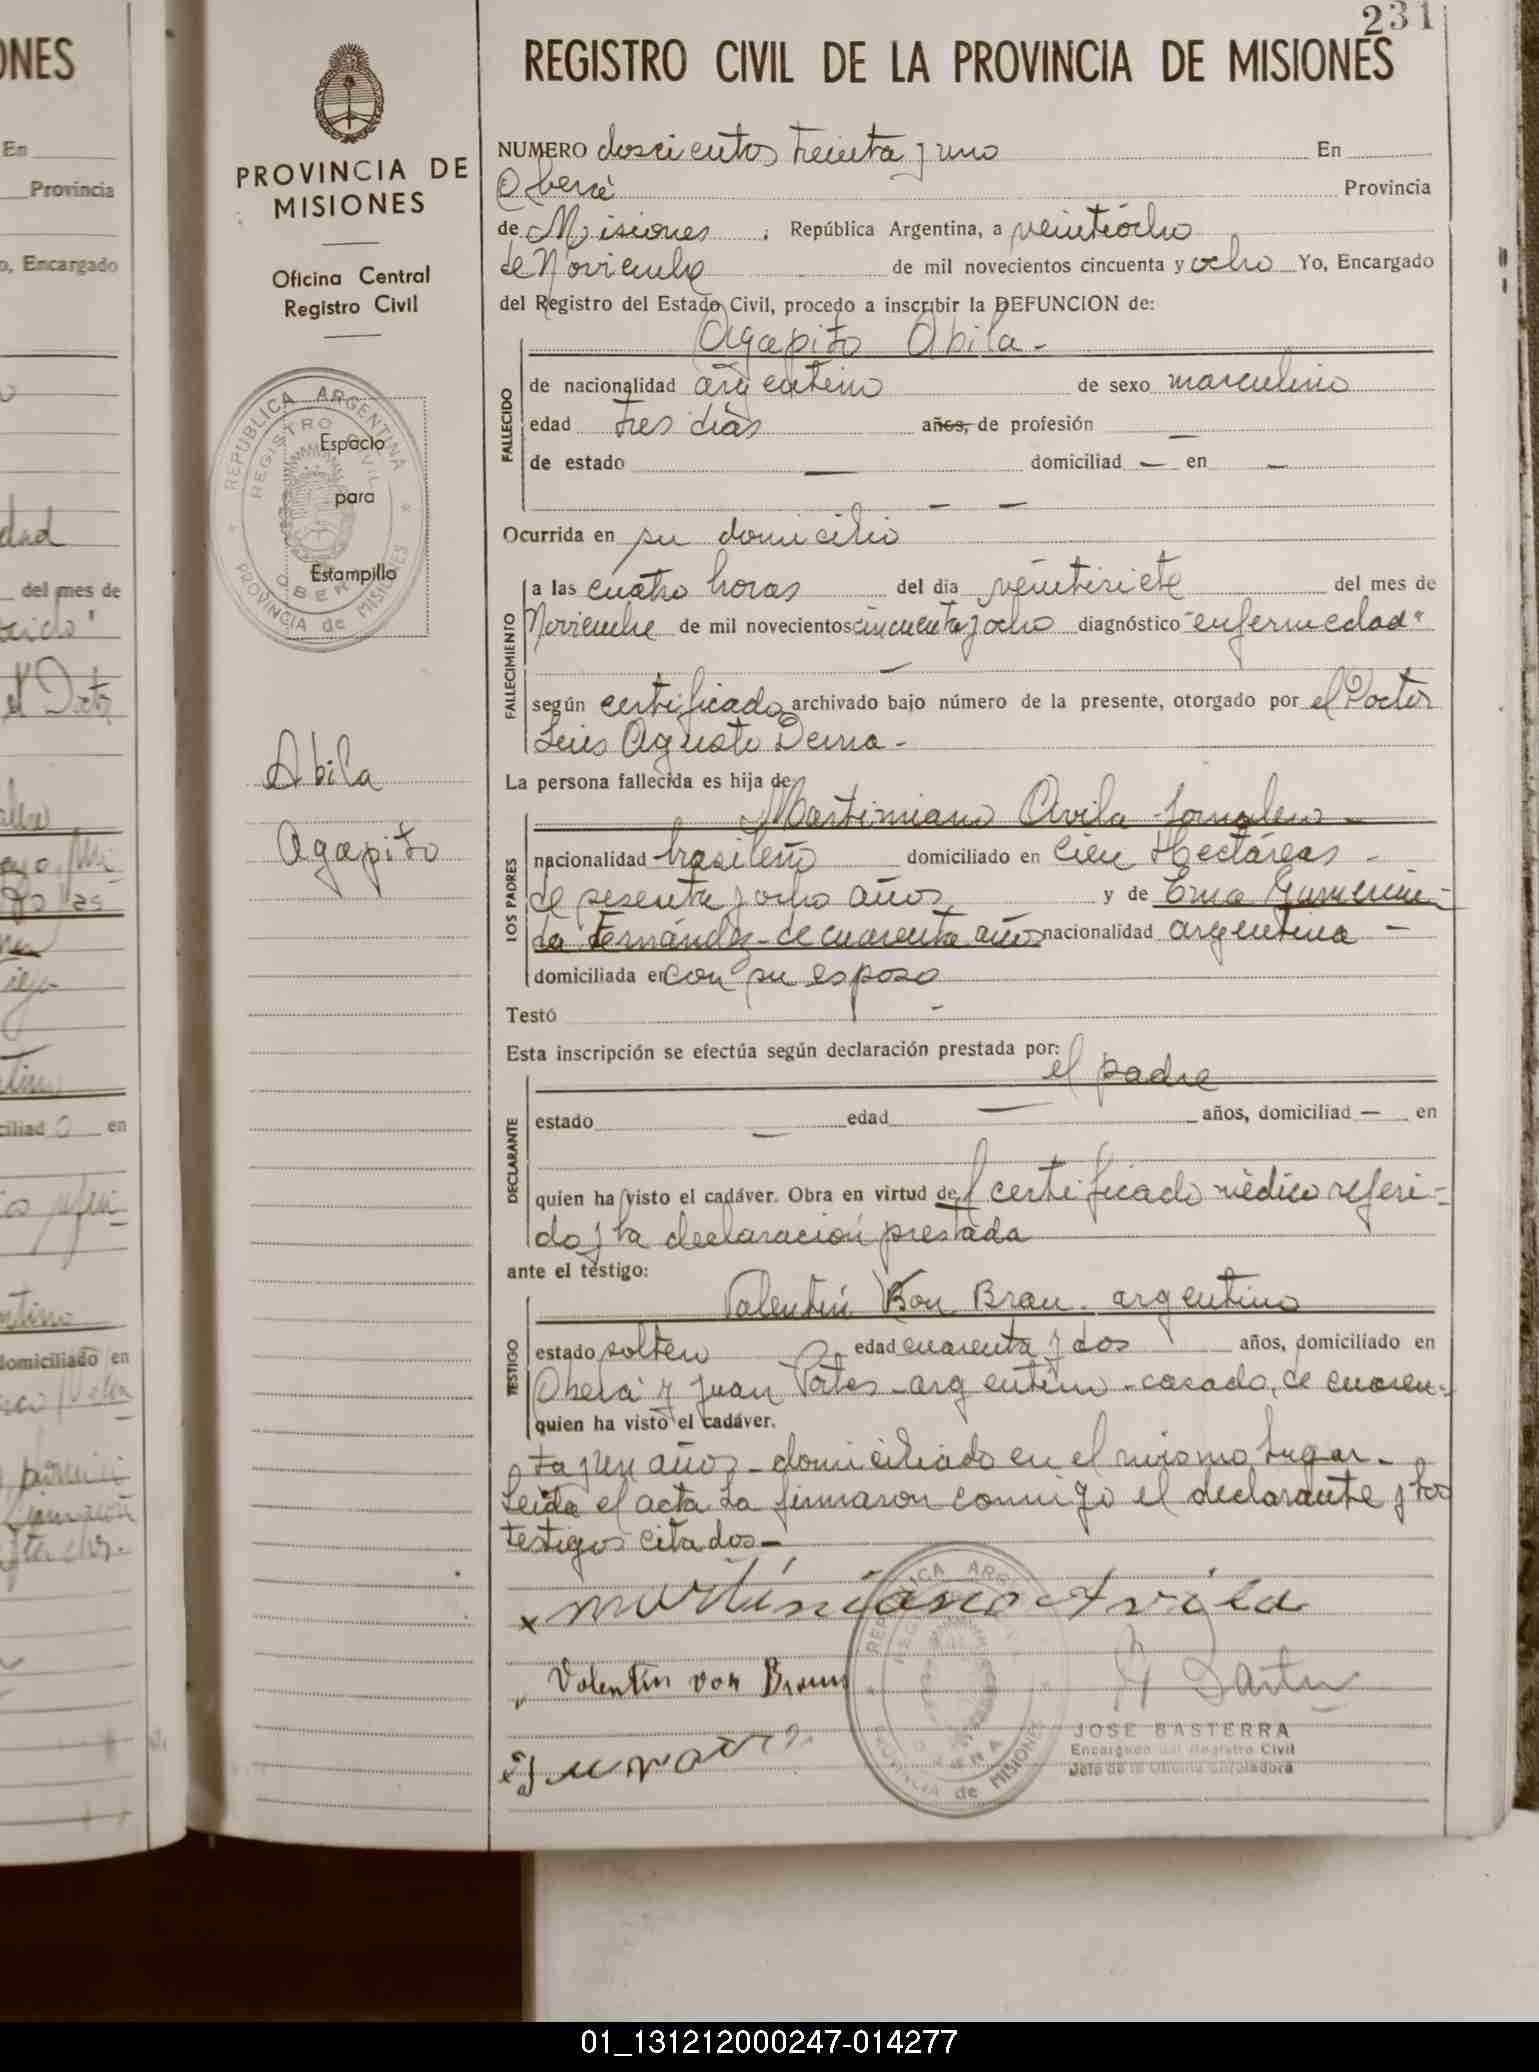 231
REGISTRO CIVIL DE LA PROVINCIA DE MISIONES
PROVINCIA DE
MISIONES
Oficina Central
Registro Civil
REPUBLICA ARGENTINA
REGISTRO CIVIL
Espacio
para
Estampilla
OBERA
PROVINCIA de MISIONES
Abila
Agapito
NUMERO doscientos treinta y uno En
Oberá Provincia
de Misiones, República Argentina, a veintiocho
de Noviembre de mil novecientos cincuenta y ocho Yo, Encargado
del Registro del Estado Civil, procedo a inscribir la DEFUNCION de:
Agapito Abila -
FALLECIDO
de nacionalidad argentino de sexo masculino
edad tres días años, de profesión —
de estado — domiciliad — en —
— —
Ocurrida en su domicilio
FALLECIMIENTO
a las cuatro horas del día veintisiete del mes de
Noviembre de mil novecientos cincuenta y ocho diagnóstico "enfermedad"
—
según certificado archivado bajo número de la presente, otorgado por el Doctor
Luis Agusto Derna -
La persona fallecida es hija de
LOS PADRES
Martimiano Avila - Jornalero -
nacionalidad brasileño domiciliado en Cien Hectáreas -
de sesenta y ocho años y de Erna
da Fernández - de cuarenta años nacionalidad argentina -
domiciliada en con su esposo
Testó -
Esta inscripción se efectúa según declaración prestada por:
el padre
DECLARANTE
estado — edad — años, domiciliad — en
quien ha visto el cadáver. Obra en virtud del certificado médico referi-
do y la declaración prestada
ante el testigo:
Valentín Von Brau - argentino
TESTIGO
estado soltero edad cuarenta y dos años, domiciliado en
Oberá y Juan - argentino - casado, de cuaren-
quien ha visto el cadáver.
ta y un años - domiciliado en el mismo lugar -
Leída el acta la firmaron conmigo el declarante y los
testigos citados -
x martiniano Avila
Valentín von Braun
REPUBLICA ARGENTINA
OBERA
PROVINCIA de MISIONES
JOSE BASTERRA
Encargado del Registro Civil
Jefe de la Oficina Enroladora
ONES
En
Provincia
o, Encargado
dad
del mes de
domiciliado en
01_131212000247-014277